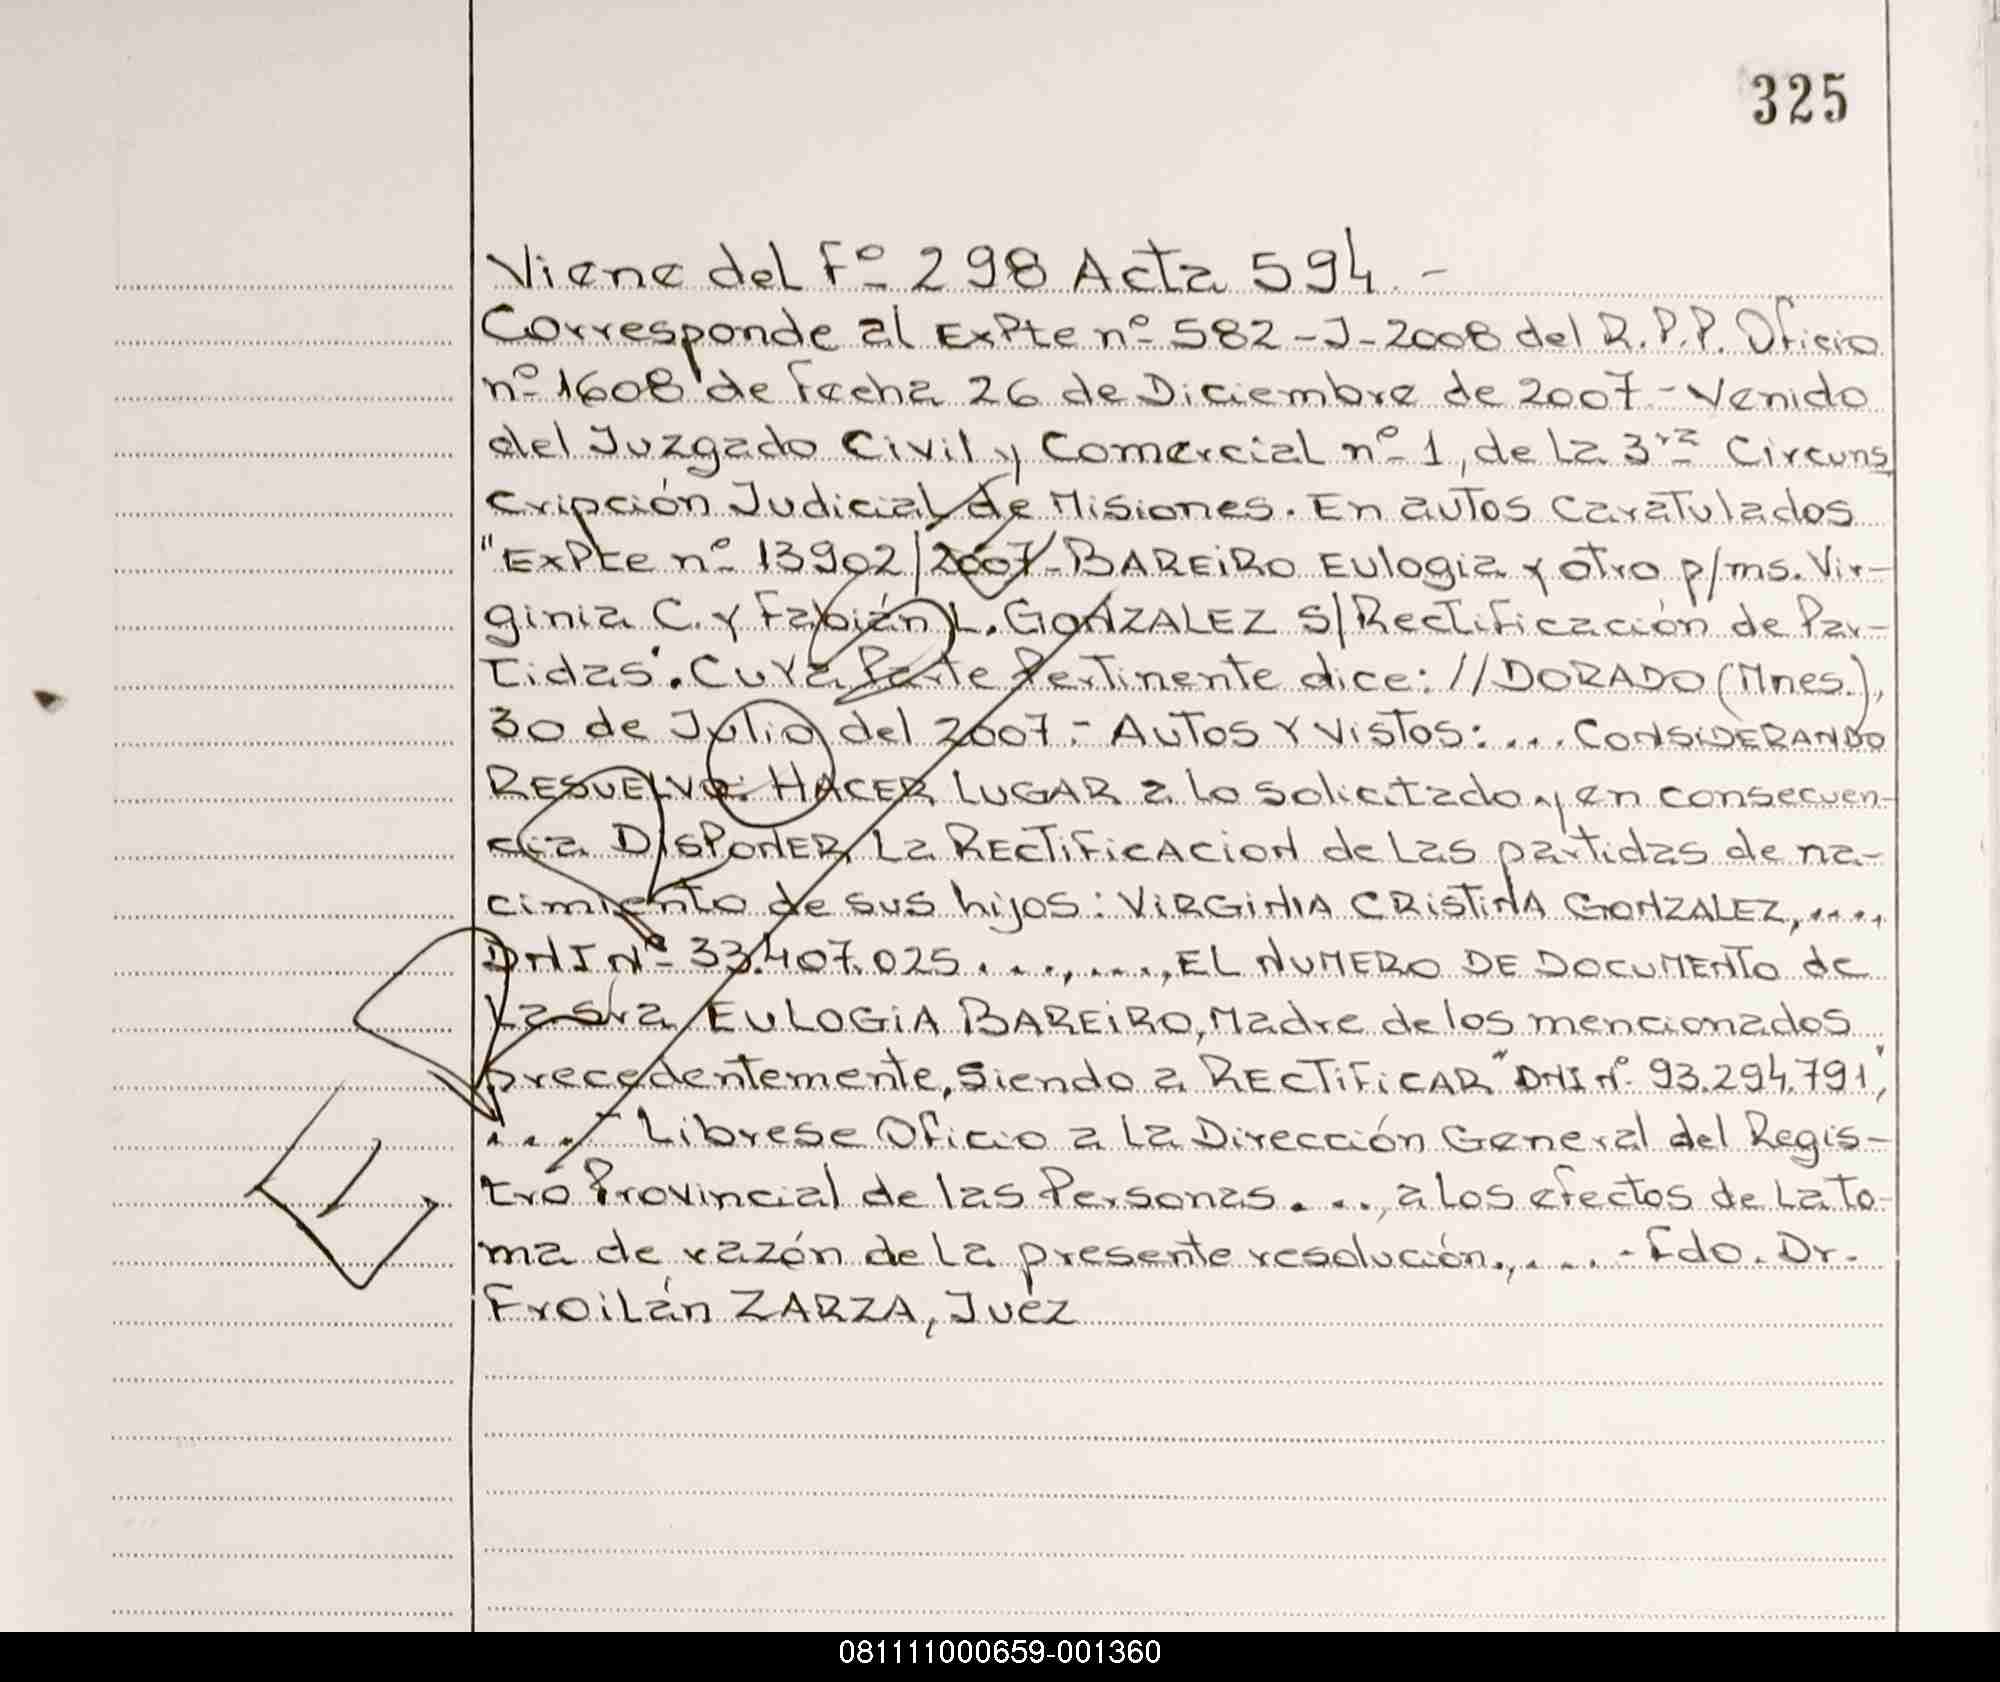 325
Viene del Fº 298 Acta 594.-
Corresponde al ExPte nº 582-J-2008 del R.P.P. Oficio
nº 1608 de Fecha 26 de Diciembre de 2007.- Venido
del Juzgado Civil y Comercial nº 1, de la 3ra Circuns
cripción Judicial de Misiones. En autos caratulados
"ExPte nº 13902/2007-BAREIRO Eulogia y otro p/ms. Vir-
ginia C. y Fabián L. GONZALEZ S/Rectificación de Par-
tidas". Cuya Parte Pertinente dice: //DORADO (Mnes.),
30 de Julio del 2007.- Autos Y Vistos: ... CONSIDERANDO
RESUELVO: HACER LUGAR a lo solicitado y en consecuen-
cia DISPONER La RECTIFICACION de Las partidas de na-
cimiento de sus hijos: VIRGINIA CRISTINA GONZALEZ, ....,
DNI Nº 33.407.025 ...., ...., EL NUMERO DE DOCUMENTO de
La sra EULOGIA BAREIRO, Madre de los mencionados
precedentemente, siendo a RECTIFICAR "DNI nº 93.294.791",
....- Librese Oficio a La Dirección General del Regis-
tro Provincial de las Personas. ..., a los efectos de La to-
ma de razón de La presente resolución., ....- Fdo. Dr.
Froilán ZARZA, Juez
081111000659-001360